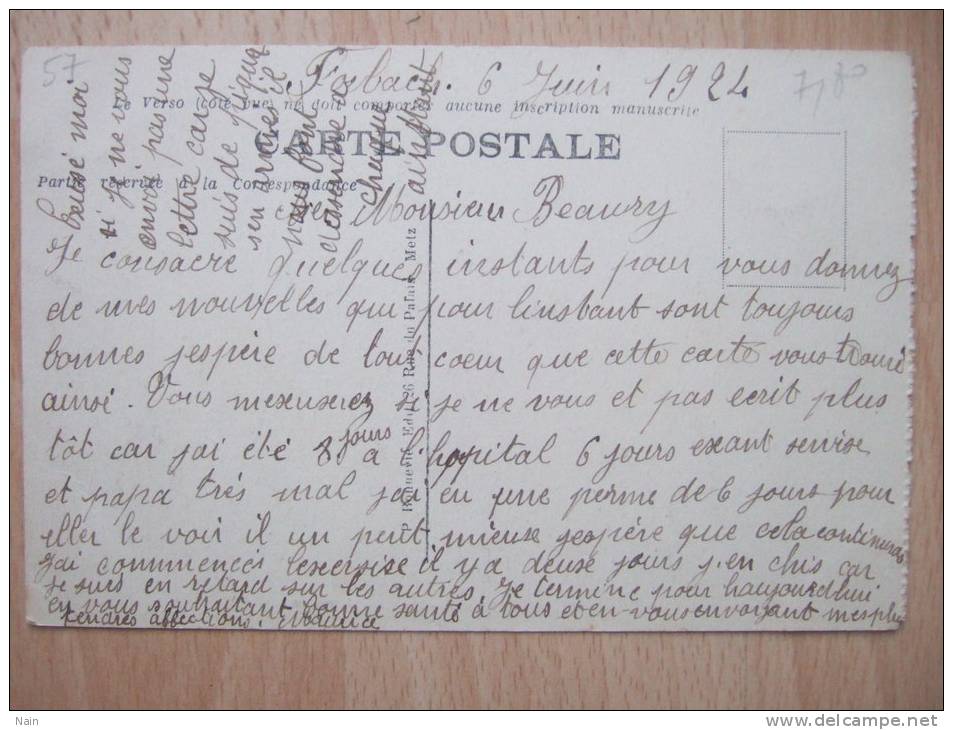 57
Forbach. 6 Juin 1924
7,80
Le Verso (côté vue) ne doit comporter aucune inscription manuscrite
CARTE POSTALE
Partie réservée à la Correspondance
Monsieur Beaury
Je consacre quelques instants pour vous donnez
de mes nouvelles qui pour l'instant sont toujours
bonnes jespère de tout coeur que cette carte vous trouve
ainsé. Vous mexuserez si je ne vous et pas ecrit plus
tôt car jai été 8 jours a l'hopital 6 jours exant servise
et papa très mal jai eu une perme de 6 jours pour
eller le voir il un petit mieuse jespère que cela continuras
jai commencés lexersise il y a deuse jours j.en chis car
je suis en retard sur les autres. Je termine pour haujourdhui
en vous souhaitant bonne santé à tous et en vous envoyant mes plus
tendres affections. Maurice
moi
si je ne vous
envoi pas une
lettre car je
suis de pique
sen armes il
nous faut
desendre a
cheque
P. Bonnevie, Edit. 26 Rue du Palais, Metz
Nain
www.delcampe.net